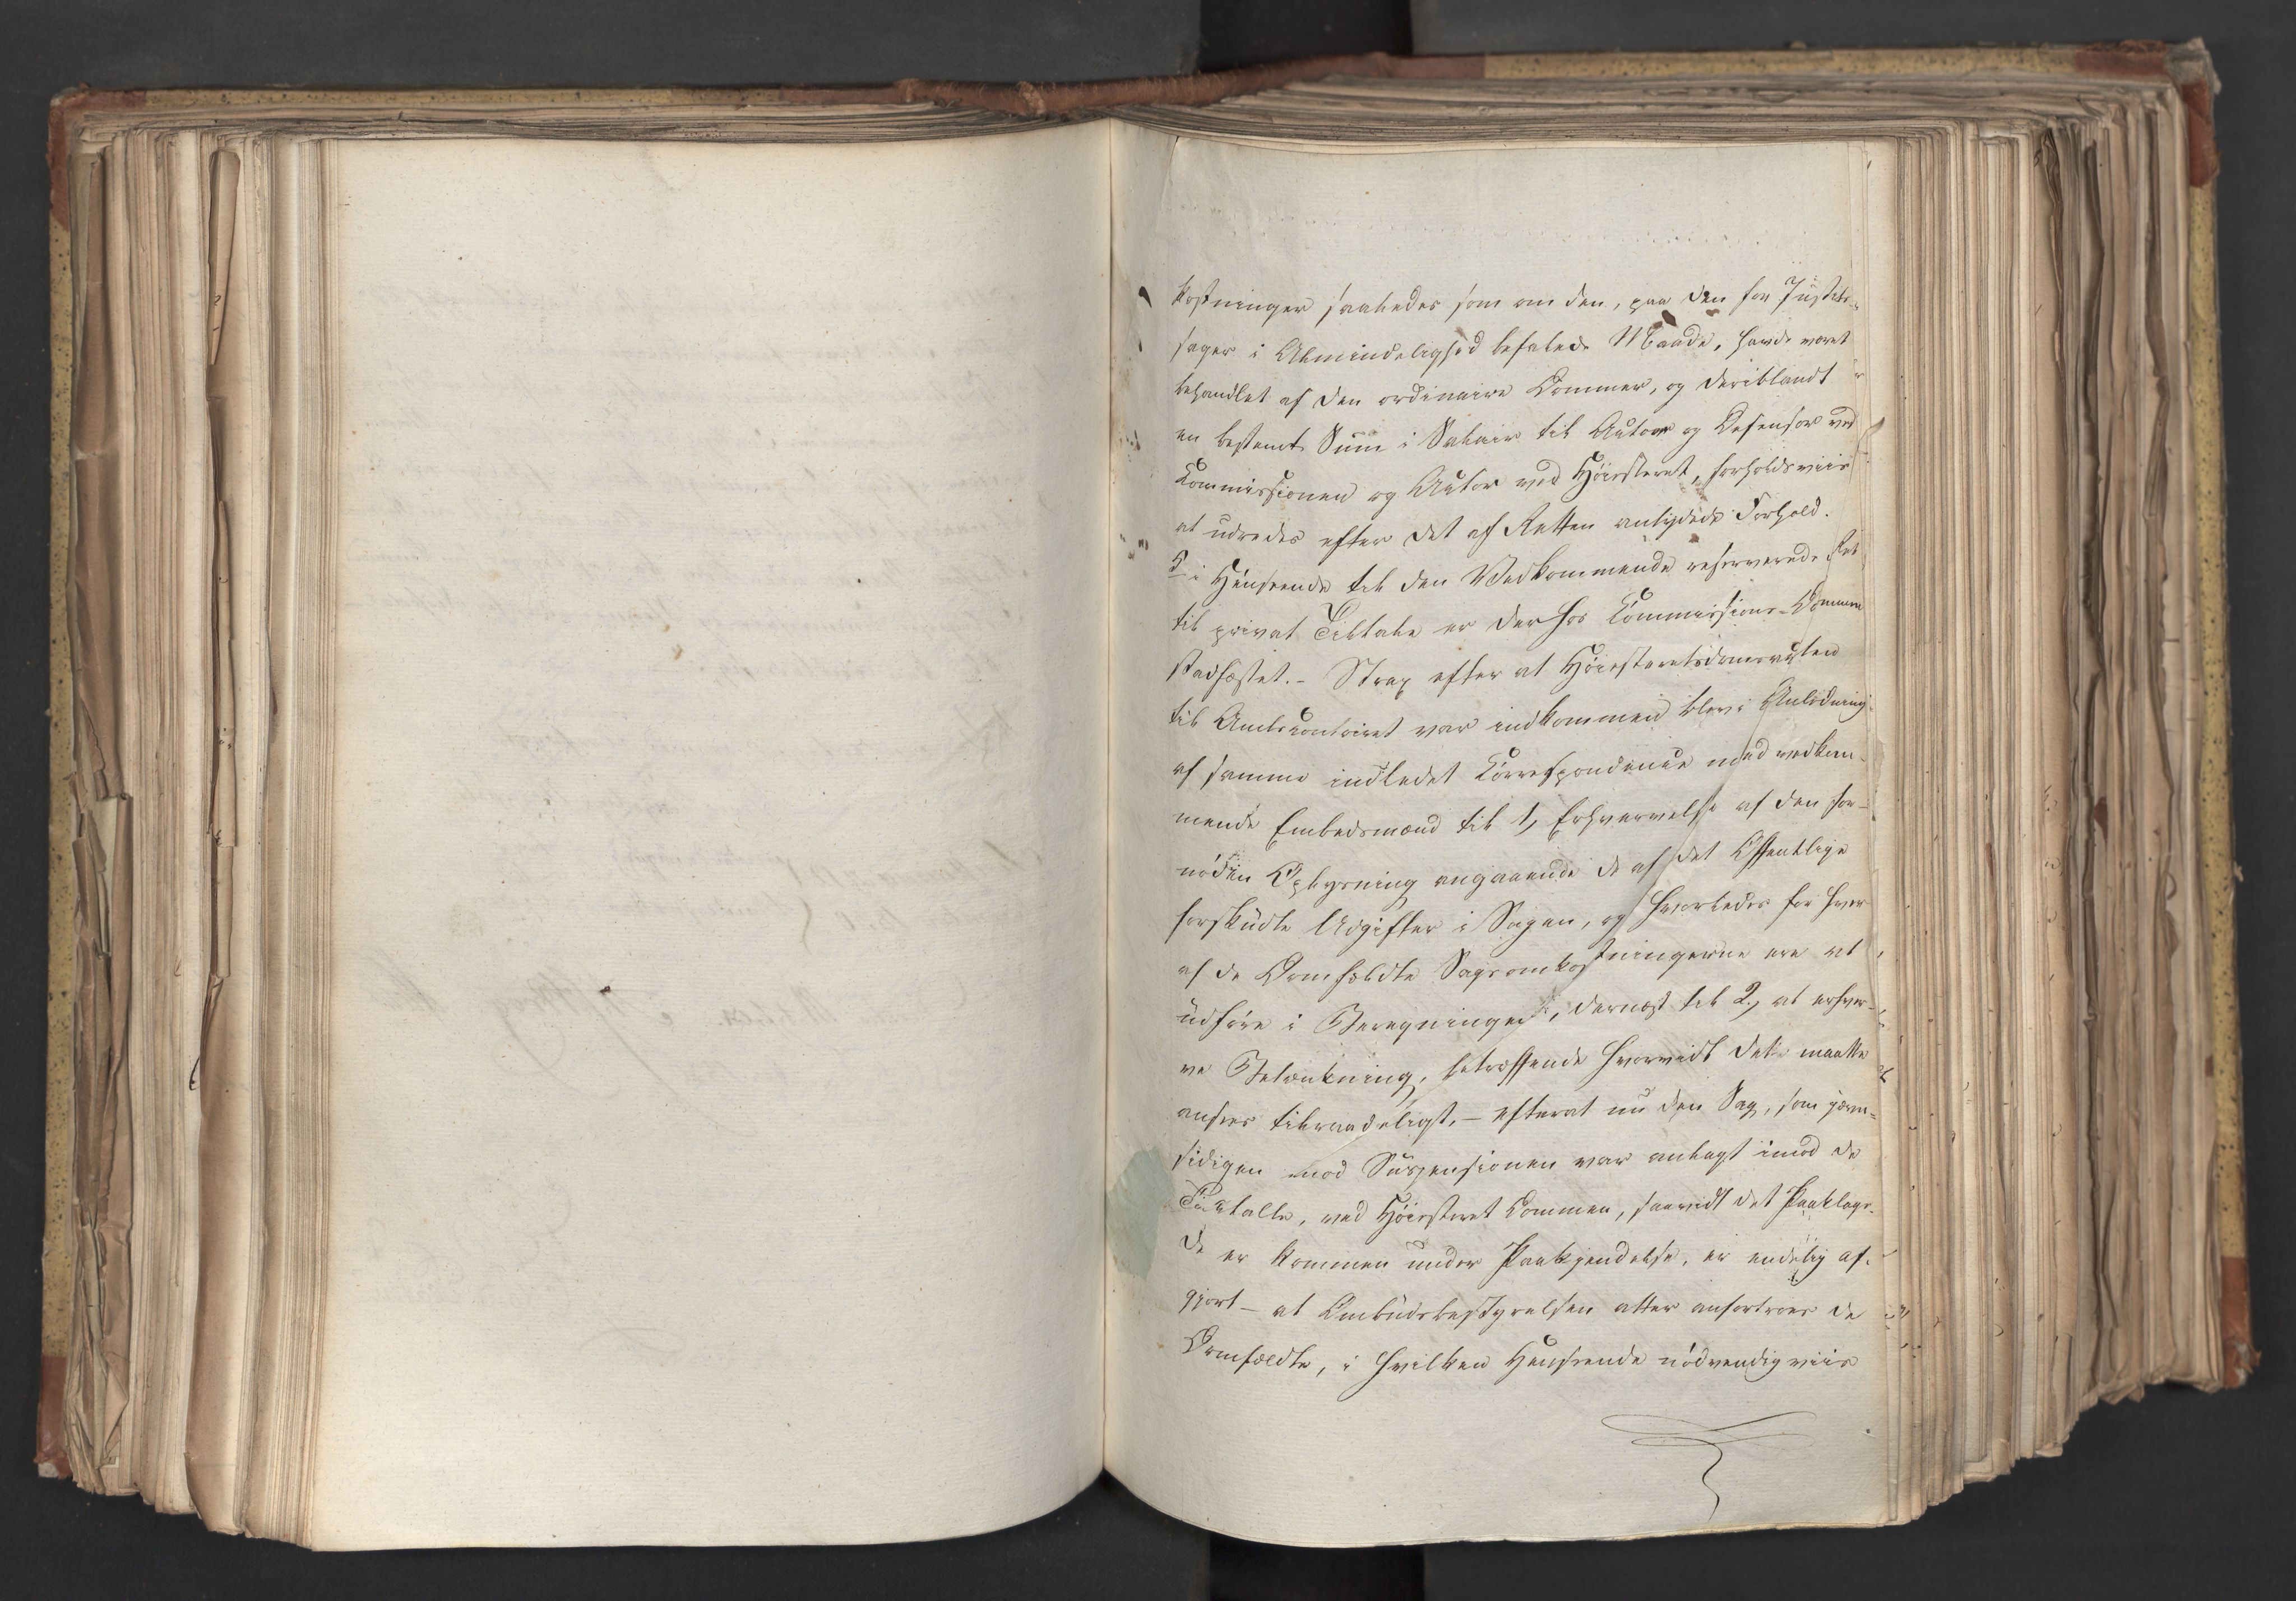 kostninger saaledes som om den, paa den for Justits-
sager i Almindelighed befalede Maade, havde været
behandlet af den ordinaire Dommer, og deriblandt
en bestemt Sum i Salair til Actor og Defensor ved
Commissionen og Actor ved Höiesteret, forholdsviis
at udredes efter det af Retten antydede Forhold.
5 i Henseende til den Vedkommende reserverede Ret
til privat Tiltale er der hos Commissions-Dommen
stadfæstet. - Strax efter at Höiesteretsdomsacten
til Amtscontoiret var indkommen blev i Anledning
af samme indledet Correspondence med vedkom-
mende Embedsmænd til 1, Erhvervelse af den for-
nödne Oplysning angaaende de af det Offentlige
forskudte Udgifter i Sagen, og hvorledes for hver
af de Domfældte Sagsomkostningerne ere at
udföre i Beregningen, dernæst til 2, at erhver-
ve Betænkning, betræffende hvorvidt det maatte
ansees tilraadeligt, - efterat nu den Sag, som jevn-
sidigen med Suspensionen var anlagt imod de
Tiltalte, ved Höiesteret Dommen, saavidt det Paaklage-
de er kommen under Paakjendelse, er endelig af-
gjort - at Ombudsbestyrelsen atter anfortroes de
Domfældte, i hvilken Henseende nödvendigviis